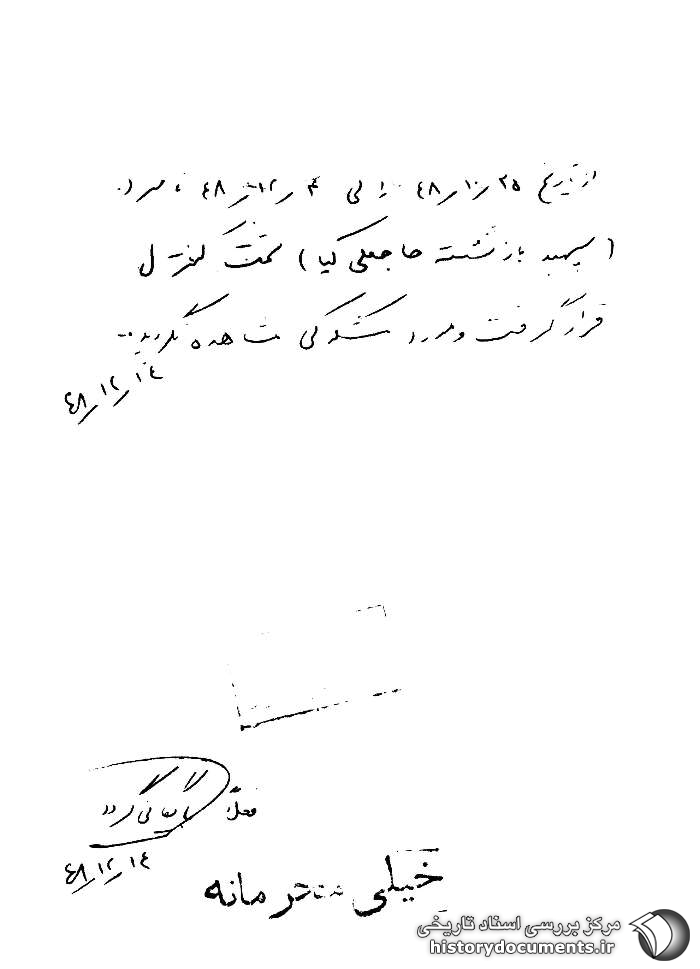 از تاریخ ۲۵ر۱۰ر۴۸ الی ۴ر۱۲ر۴۸ نامبرده
(سپهبد بازنشسته حاجعلی کیا) تحت کنترل
قرار گرفت و مورد مشکوکی مشاهده نگردید..
۴۸ر۱۲ر۱۴
فعلاً بایگانی گردد
۴۸ر۱۲ر۱۴
خیلی محرمانه
مرکز بررسی اسناد تاریخی
historydocuments.ir